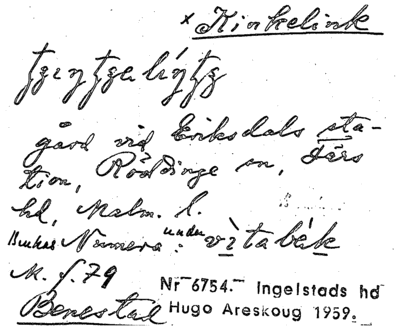 x Kinkelink
gård vid Eriksdals sta-
tion, Röddinge sn, Färs
hd, Malm. l.
Brukas Numera: under vìtabäk
M. f. 79
Benestad
Nr 6754. Ingelstads hd
Hugo Areskoug 1959.